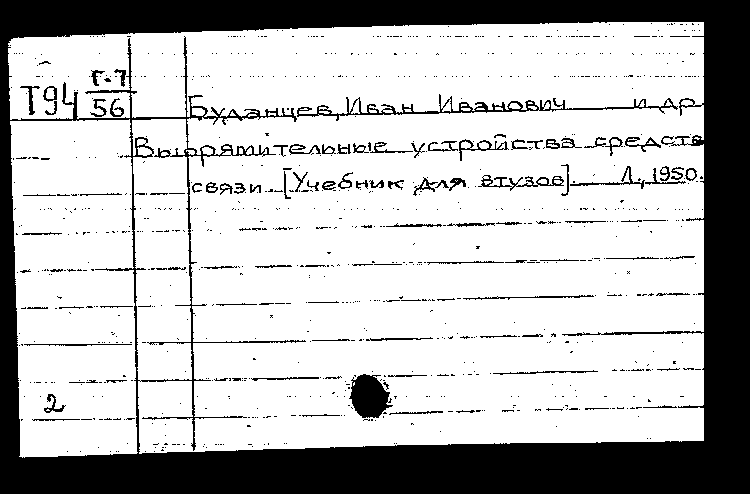 Т94 Г-7/56
Буданцев, Иван Иванович и др
Выпрямительные устройства средств
связи. [Учебник для втузов]. Л., 1950.
2